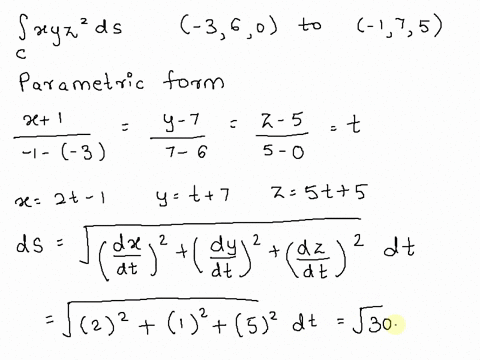 ∫_C xyz² ds (-3,6,0) to (-1,7,5)
Parametric form
(x+1)/(-1-(-3)) = (y-7)/(7-6) = (z-5)/(5-0) = t
x = 2t-1 y = t+7 z = 5t+5
ds = √((dx/dt)² + (dy/dt)² + (dz/dt)²) dt
= √((2)² + (1)² + (5)²) dt = √30